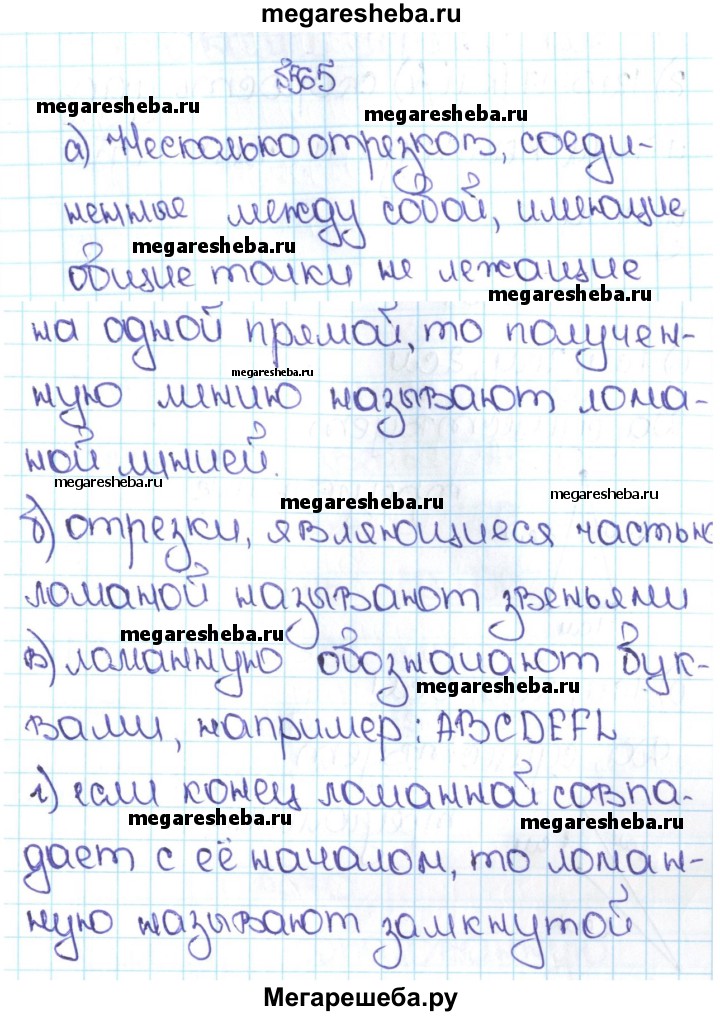 megaresheba.ru
№565
megaresheba.ru
megaresheba.ru
а) Несколько отрезков, соеди-
ненные между собой, имеющие
megaresheba.ru
общие точки не лежащие
megaresheba.ru
на одной прямой, то получен-
megaresheba.ru
ную линию называют лома-
ной линией.
megaresheba.ru
megaresheba.ru
megaresheba.ru
б) отрезки, являющиеся частью
ломаной называют звеньями
megaresheba.ru
в) ломанную обозначают бук-
megaresheba.ru
вами, например: ABCDEFL
г) если конец ломанной совпа-
megaresheba.ru
megaresheba.ru
дает с её началом, то ломан-
ную называют замкнутой
Мегарешеба.ру